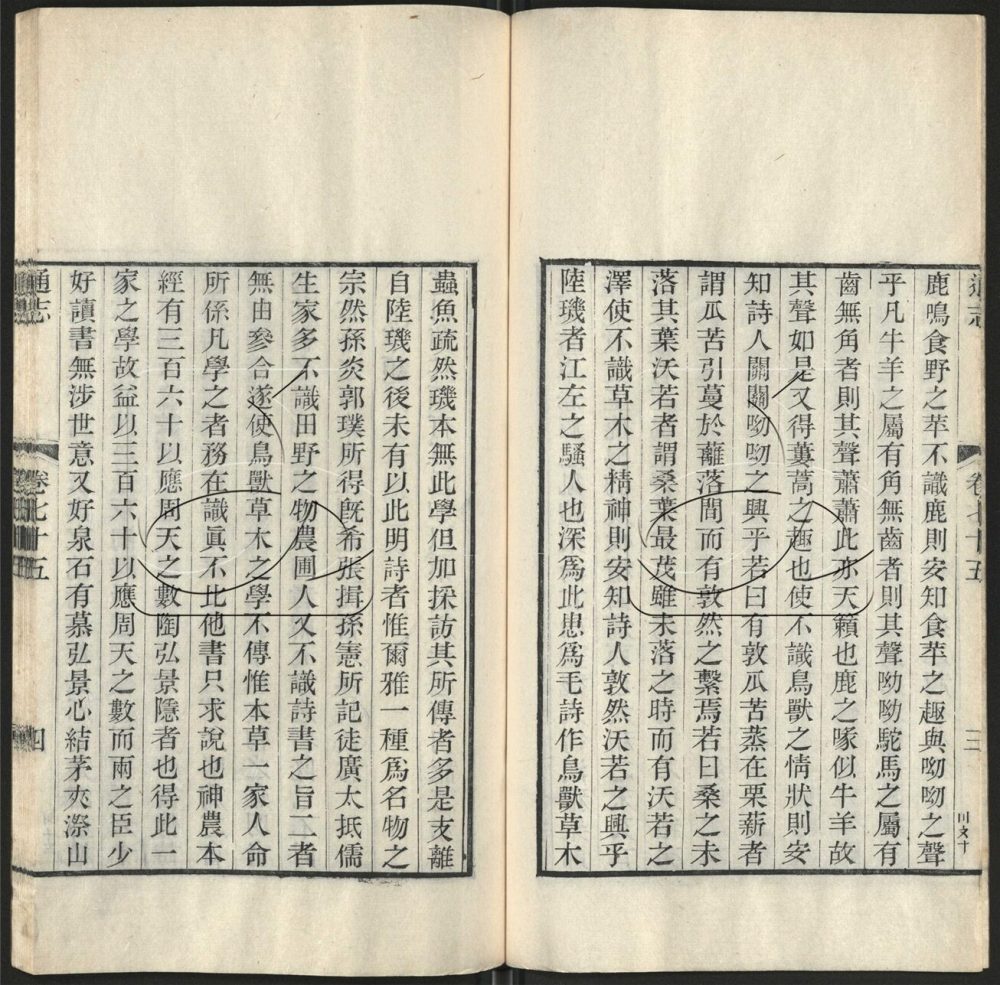 通志
卷七十五
三
鹿鳴食野之苹不識鹿則安知食苹之趣與呦呦之聲
乎凡牛羊之屬有角無齒者則其聲呦呦駝馬之屬有
齒無角者則其聲蕭蕭此亦天籟也鹿之喙似牛羊故
其聲如是又得蔞蒿之趣也使不識鳥獸之情狀則安
知詩人關關呦呦之興乎若曰有敦瓜苦蒸在栗薪者
謂瓜苦引蔓於蘺落間而有敦然之繫焉若曰桑之未
落其葉沃若者謂桑葉最茂雖未落之時而有沃若之
澤使不識草木之精神則安知詩人敦然沃若之興乎
陸璣者江左之騷人也深爲此患爲毛詩作鳥獸草木
蟲魚疏然璣本無此學但加採訪其所傳者多是支離
自陸璣之後未有以此明詩者惟爾雅一種爲名物之
宗然孫炎郭璞所得旣希張揖孫憲所記徒廣大抵儒
生家多不識田野之物農圃人又不識詩書之旨二者
無由參合遂使鳥獸草木之學不傳惟本草一家人命
所係凡學之者務在識眞不比他書只求說也神農本
經有三百六十以應周天之數陶弘景隱者也得此一
家之學故益以三百六十以應周天之數而兩之臣少
好讀書無涉世意又好泉石有慕弘景心結茅夾漈山
通志
卷七十五
四